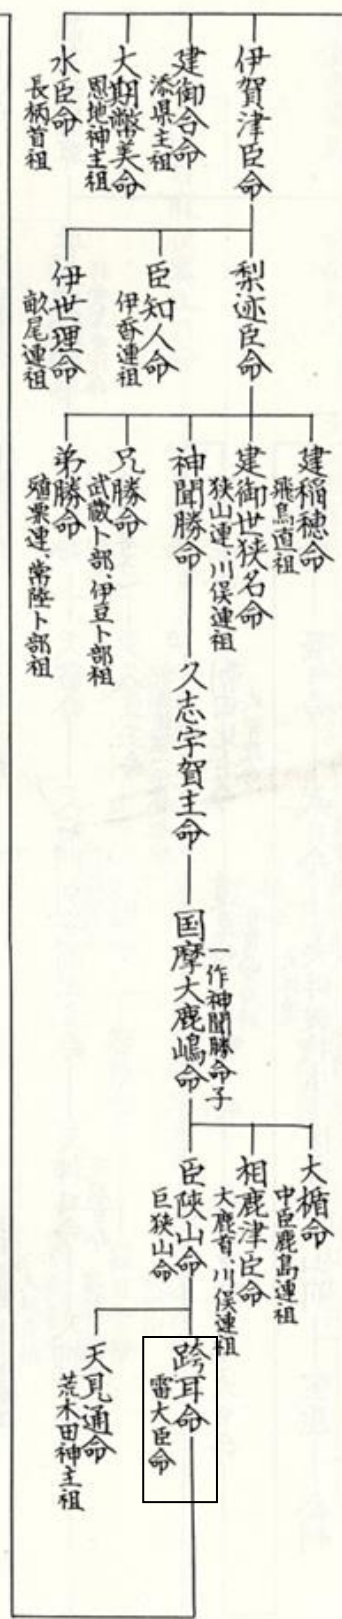 伊賀津臣命
建御合命
添県主祖
大期幣美命
恩地神主祖
水臣命
長柄首祖
梨迹臣命
臣知人命
伊香連祖
伊世理命
畝尾連祖
建稲穂命
飛鳥直祖
建御世狭名命
狭山連、川俣連祖
神聞勝命
兄勝命
武蔵卜部、伊豆卜部祖
弟勝命
殖栗連、常陸卜部祖
久志宇賀主命
国摩大鹿嶋命
一作神聞勝命子
大楯命
中臣鹿島連祖
相鹿津臣命
大鹿首、川俣連祖
臣陜山命
巨狭山命
跨耳命
雷大臣命
天見通命
荒木田神主祖